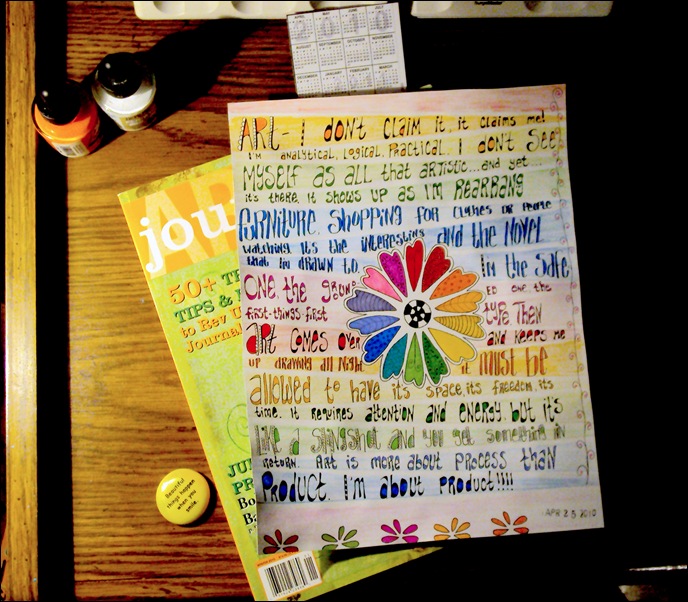 APRIL
AUGUST SEPTEMBER
DECEMBER JANUARY FEBRUARY
ART - I don't claim it, it claims me!
I'm analytical, logical, practical. I don't see
myself as all that artistic...and yet...
it's there. it shows up as I'm rearrang
furniture, shopping for clothes or people
watching. its the interesting and the novel
that im drawn to. In the safe
one, the groun ed one the
first-things-first type. Then
art comes over and keeps me
up drawing all night it must be
allowed to have its space, its freedom, its
time. it requires attention and energy. but it's
like a slingshot and you get something in
return. Art is more about process than
product. I'm about product!!!!
APR 25 2010
AR
jou
50+ T
TIPS &
to Rev U
Journal
JU
PR
Bo
Ba
Beautiful
things happen
when you
smile.